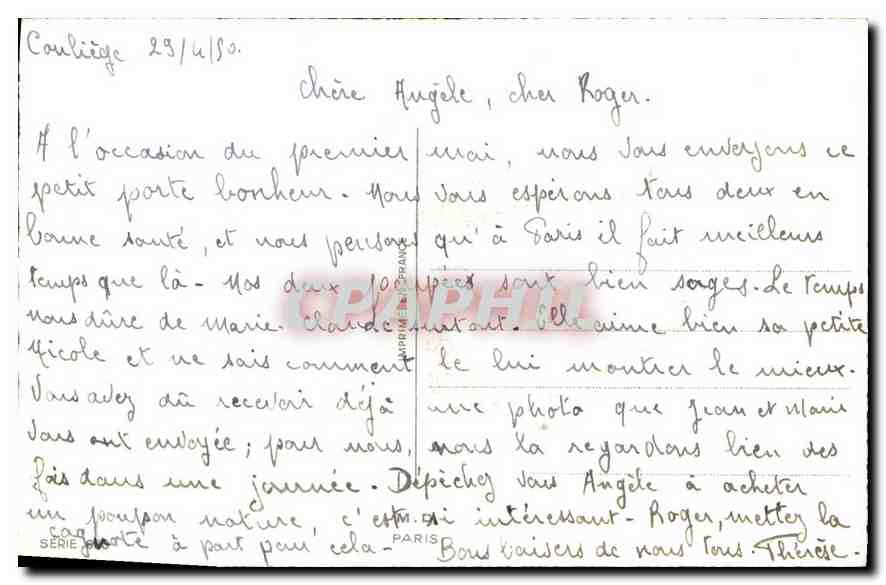 Conliège 29/4/50.
Chère Angèle, cher Roger.
A l'occasion du premier mai, nous vous envoyons ce
petit porte bonheur. Nous vous espérons tous deux en
bonne santé, et nous pensons qu'à Paris il fait meilleurs
temps que là - Nos deux poupées sont bien sages. Le temps
nous dûre de Marie-Claude surtout. Elle aime bien sa petite
Nicole et ne sais comment le lui montrer le mieux.
Vous avez dû recevoir déjà une photo que Jean et Marie
vous ont envoyée; pour nous, nous la regardons bien des
fois dans une journée. Dépêchez vous Angèle à acheter
un poupon nature, c'est si intéressant - Roger, mettez la
cagnote à part pour cela - Bons baisers de nous tous. Thérèse.
IMPRIMÉ EN FRANCE
CPAPHIL
SÉRIE
M.D.
PARIS